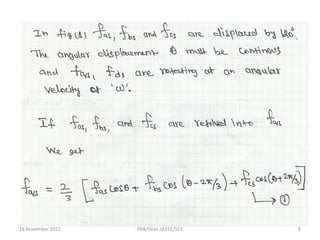 In fig(1) fas, fbs and fcs are displaced by 120°.
The angular displacement θ must be continous
and fqs, fds are rotating at an angular
velocity of 'ω'.
If fas, fbs, and fcs are resolved into fqs
We get
fqs = 2/3 [fas cosθ + fbs cos(θ-2π/3) + fcs cos(θ+2π/3)]
→ ①
16 November 2012 PRB/Dept.of EEE/SCE 8